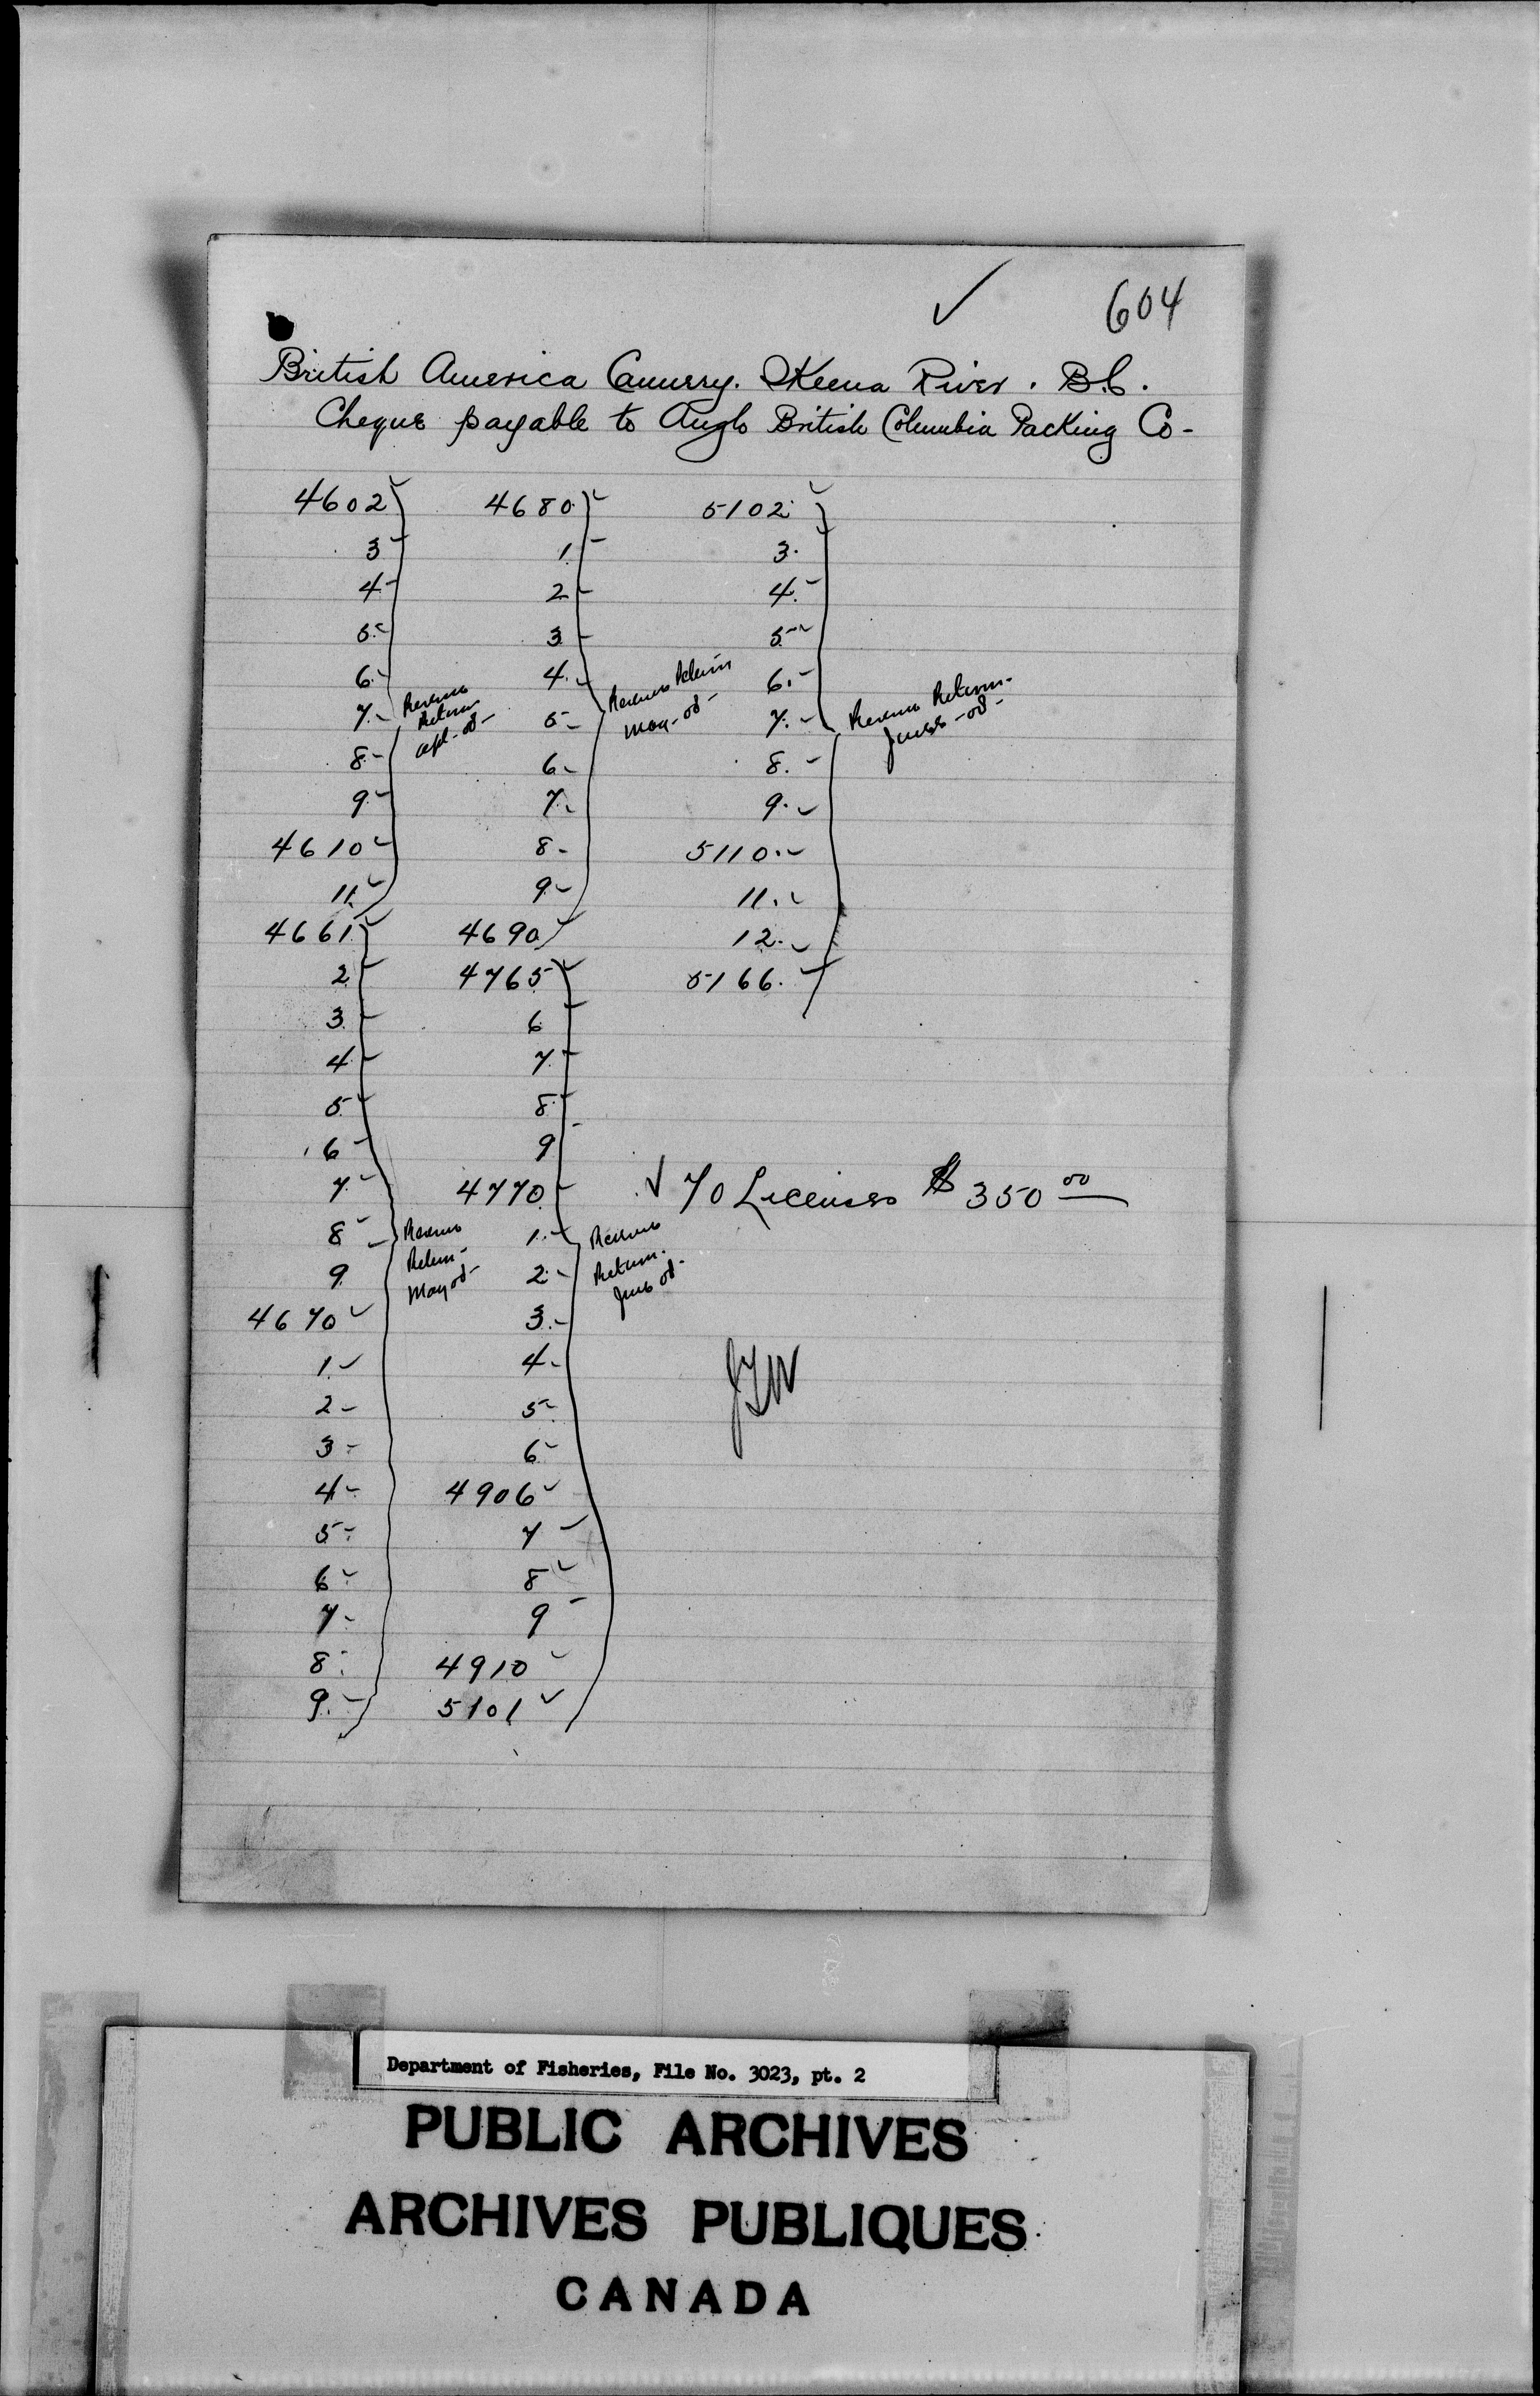 604
British America Cannery. Skeena River. B.C.
Cheque payable to Anglo British Columbia Packing Co-
4602
3
4
5
6
7
8
9
4610
11
Revenue
Return
Apl-08-
4661
2
3
4
5
6
7
8
9
4670
1
2
3
4
5
6
7
8
9
Revenue
Return-
May 08-
4680
1
2
3
4
5
6
7
8
9
4690
Revenue Return
May-08-
4765
6
7
8
9
4770
1
2
3
4
5
6
4906
7
8
9
4910
5101
Revenue
Return.
June 08-
5102
3.
4.
5
6.
7.
8.
9.
5110.
11.
12.
5166.
Revenue Return-
June-08-
70 Licenses $350 00
Department of Fisheries, File No. 3023, pt. 2
PUBLIC ARCHIVES
ARCHIVES PUBLIQUES
CANADA